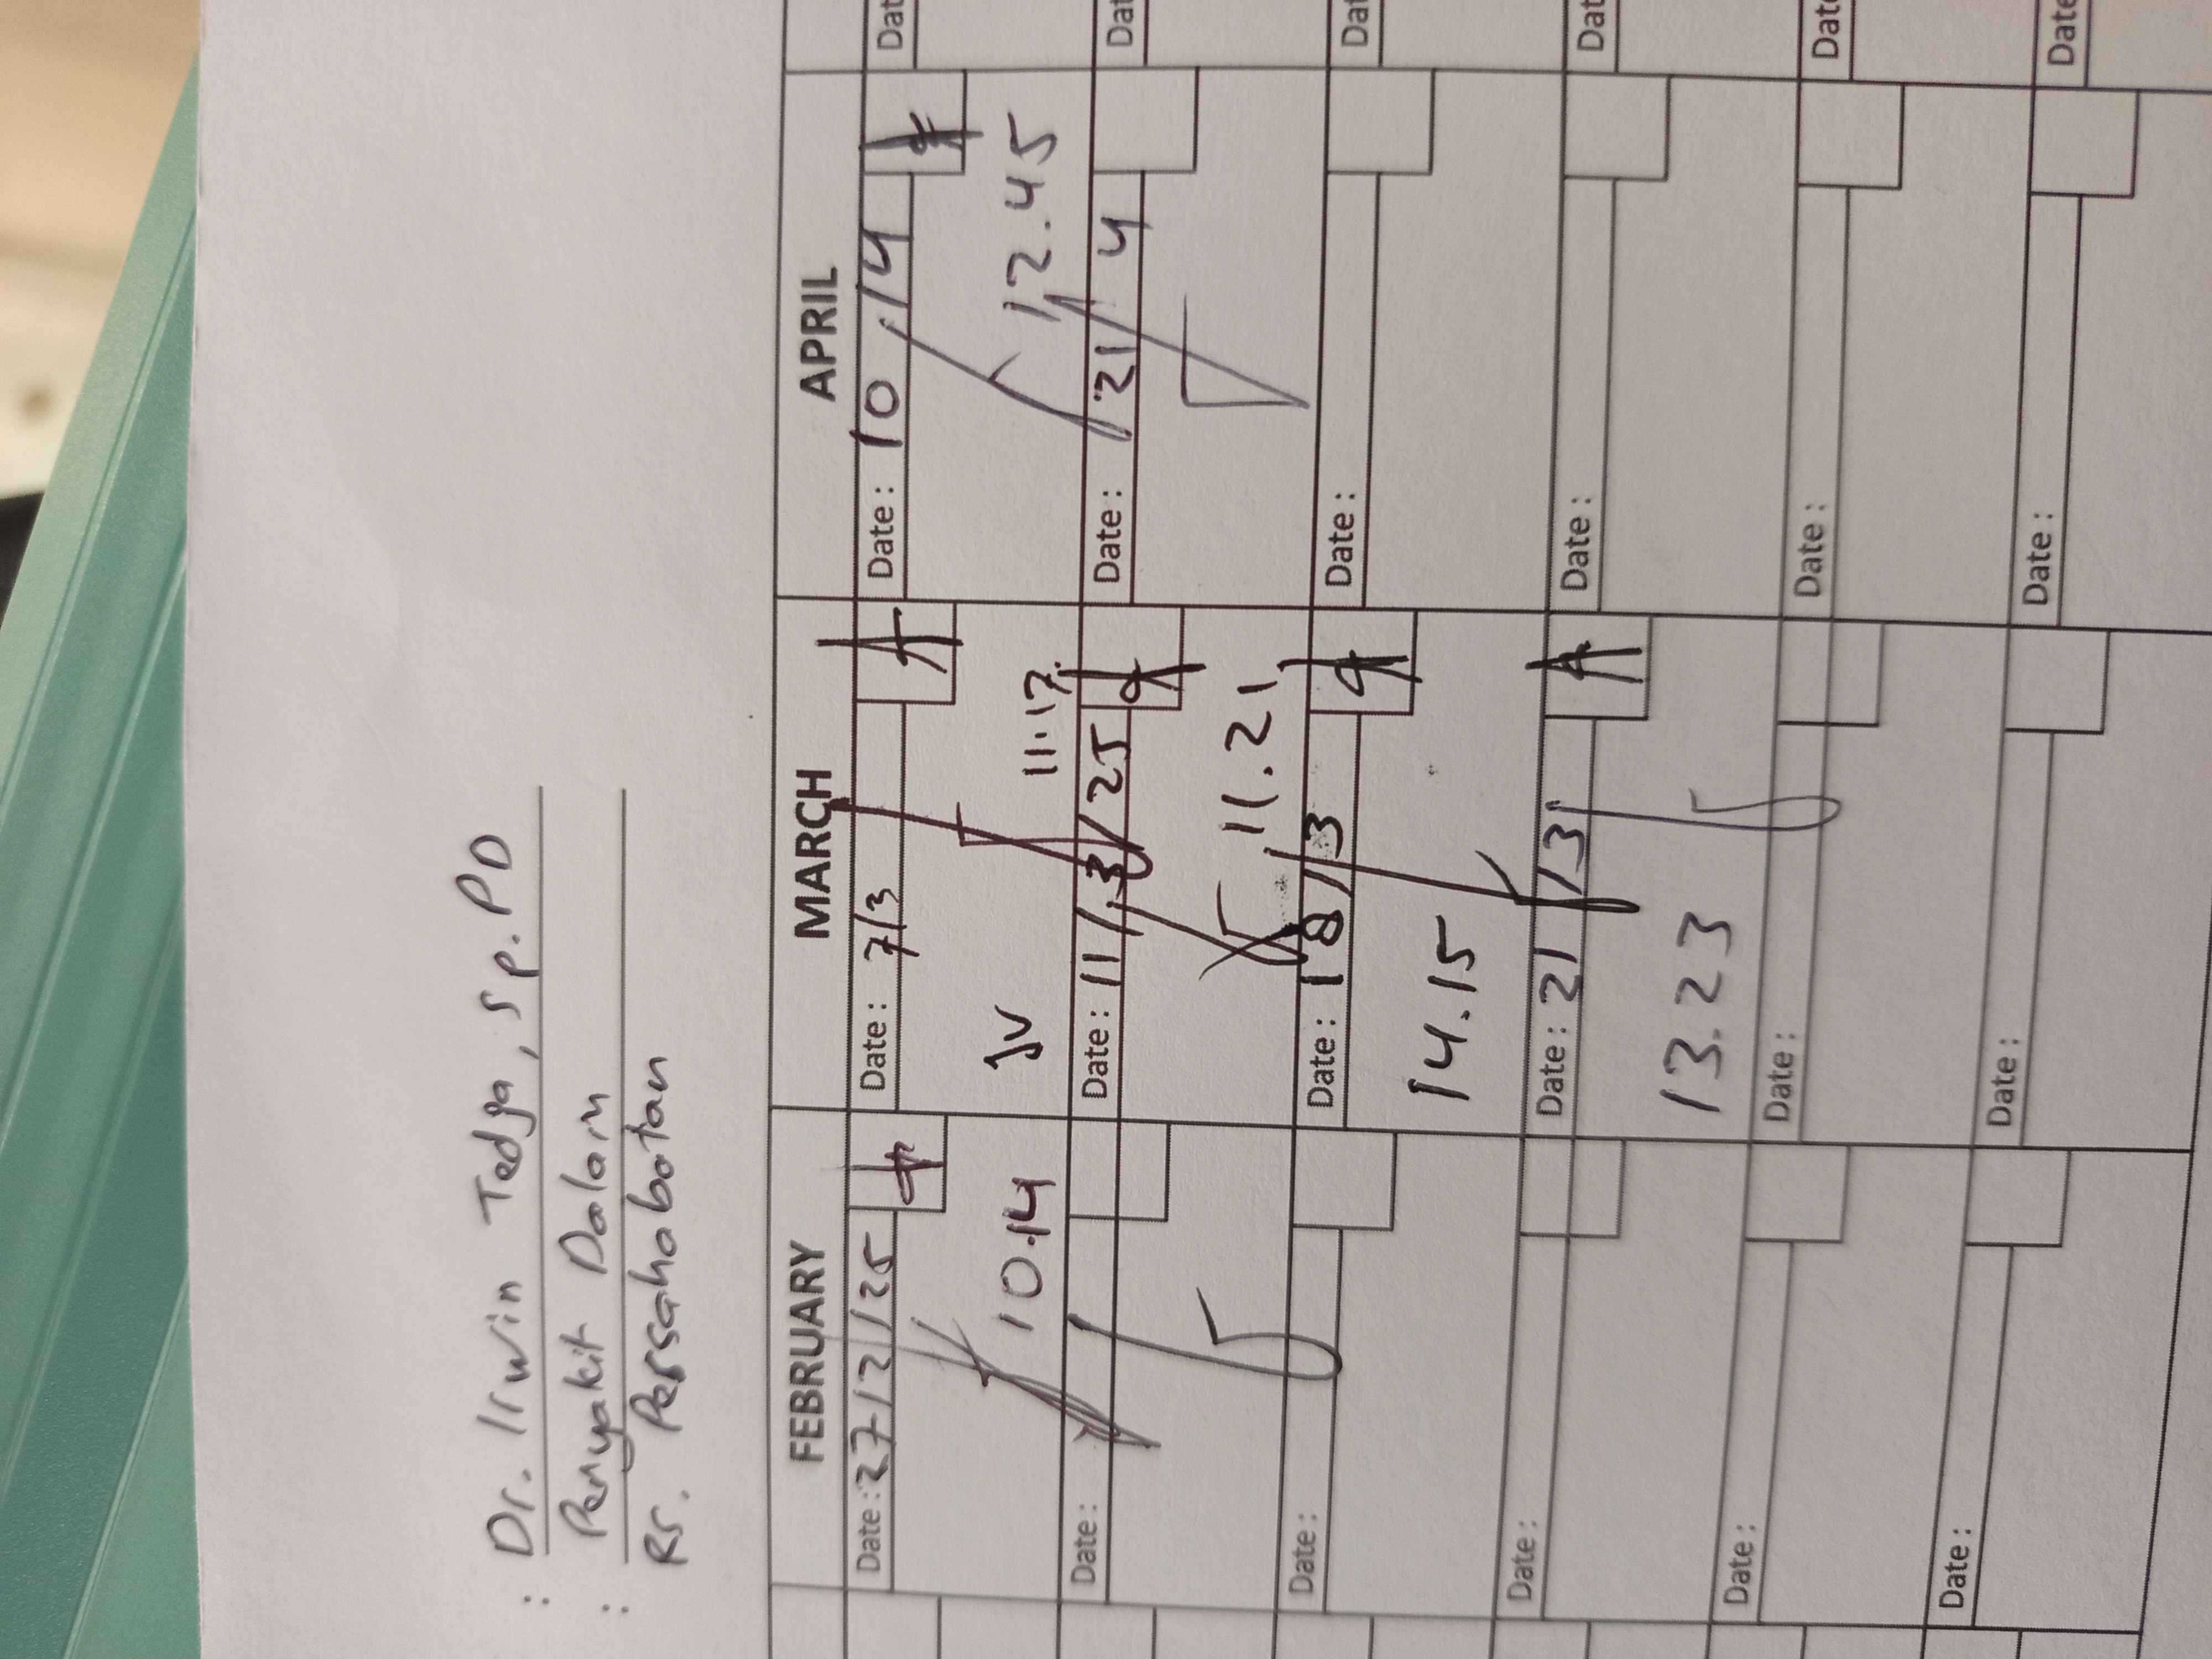 : Dr. Irwin Tedja, Sp.PD
: Penyakit Dalam
Rs. Persahabatan
FEBRUARY MARCH APRIL
Date : 27/2/25
10.14
Date :
Date :
Date :
Date :
Date :
Date : 7/3
JV
11.17
Date : 11/3/25
11.21
Date : 18/3
14.15
Date : 21/3
13.23
Date :
Date :
Date : 10/4
12.45
Date : 21/4
Date :
Date :
Date :
Date :
Dat
Dat
Dat
Dat
Date
Date